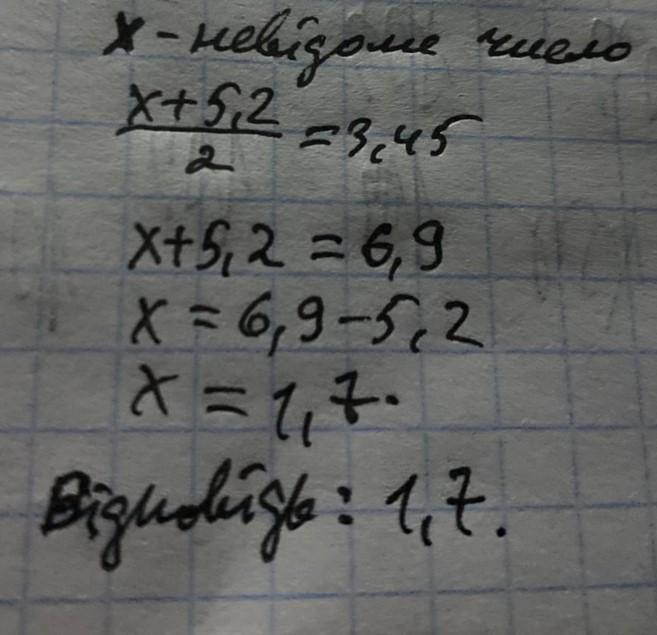 x - невідоме число
x+5,2 / 2 = 3,45
x+5,2 = 6,9
x = 6,9-5,2
x = 1,7.
Відповідь: 1,7.